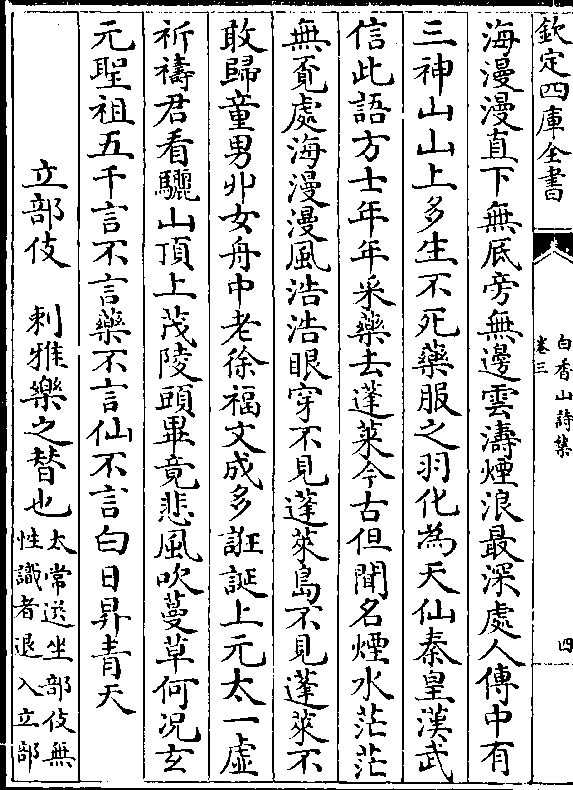 欽定四庫全書
白香山詩集
卷三
四
海漫漫直下無底旁無邊雲濤煙浪最深處人傳中有
三神山山上多生不死藥服之羽化為天仙秦皇漢武
信此語方士年年采藥去蓬萊今古但聞名煙水茫茫
無覓處海漫漫風浩浩眼穿不見蓬萊島不見蓬萊不
敢歸童男丱女舟中老徐福文成多誑誕上元太一虛
祈禱君看驪山頂上茂陵頭畢竟悲風吹蔓草何况玄
元聖祖五千言不言藥不言仙不言白日昇青天
立部伎　刺雅樂之替也
太常選坐部伎無
性識者退入立部